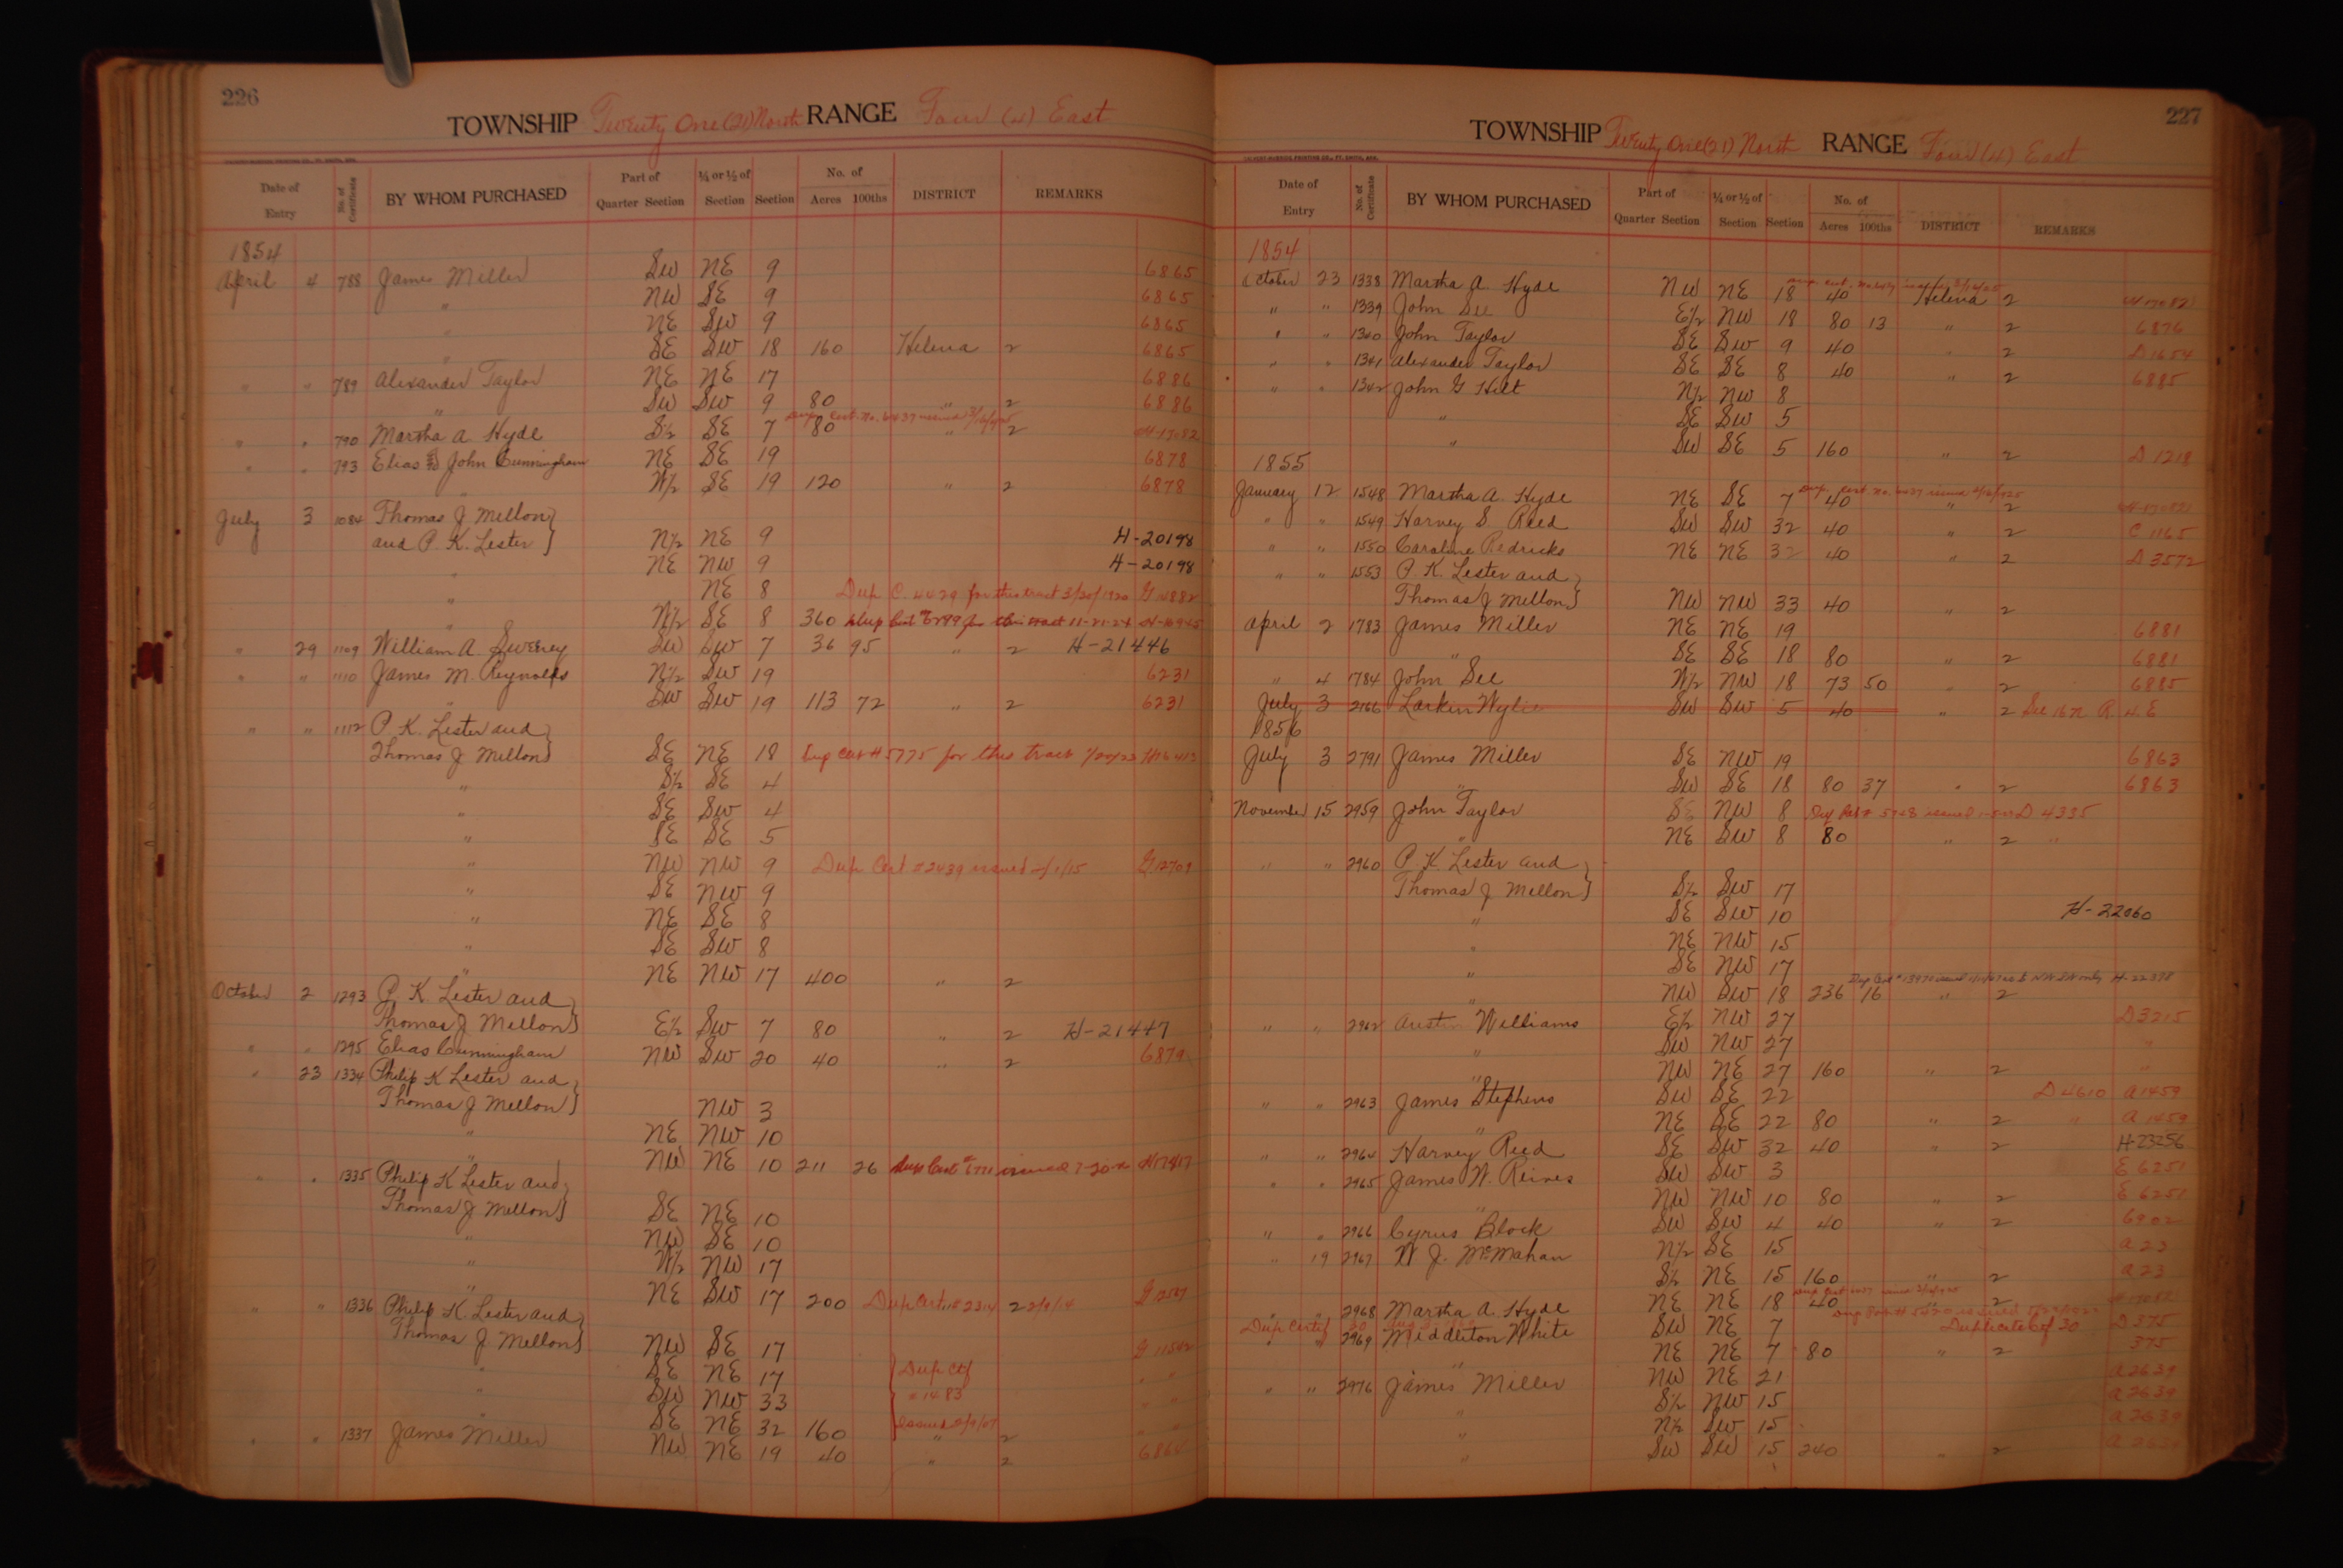 226
TOWNSHIP Twenty One (21) North RANGE Four (4) East
Date of Entry No. of Certificate BY WHOM PURCHASED Part of Quarter Section ¼ or ½ of Section Section No. of Acres 100ths DISTRICT REMARKS
1854
April 4 788 James Miller SW NE 9 6865
" NW SE 9 6865
" NE SW 9 6865
" SE SW 18 160 Helena 2 6865
" " 789 Alexander Taylor NE NE 17 6886
" SW SW 9 80 " 2 6886
" " 790 Martha A. Hyde S½ SE 7 80 " 2 H-17082
" " 793 Elias & John Cunningham NE SE 19 6878
" W½ SE 19 120 " 2 6878
July 3 1084 Thomas J Mellon
and P. K. Lester } N½ NE 9 H-20198
" NE NW 9 H-20198
" NE 8 Dup C. 4429 for this tract 3/20/1920 G 14882
" N½ SE 8 360
" 29 1109 William A. Swerey SW SW 7 36 95 " 2 H-21446
" " 1110 James M. Reynolds N½ SW 19 6231
" SW SW 19 113 72 " 2 6231
" " 1112 P. K. Lester and
Thomas J Mellon } SE NE 18 Dup Cert # 5775 for this tract 1/20/23
" S½ SE 4
" SE SW 4
" SE SE 5
" NW NW 9 Dup Cert # 2439 issued G 12709
" SE NW 9
" NE SE 8
" SE SW 8
" NE NW 17 400 " 2
October 2 1293 P. K. Lester and
Thomas J Mellon } E½ SW 7 80 " 2 H-21447
" " 1295 Elias Cunningham NW SW 20 40 " 2 6879
" 23 1334 Philip K Lester and
Thomas J Mellon } NW 3
" NE NW 10
" NW NE 10 211 26
" " 1335 Philip K Lester and
Thomas J Mellon } SE NE 10
" NW SE 10
" W½ NW 17
" NE SW 17 200 Dup Cert # 2314 2 2/9/14
" " 1336 Philip K. Lester and
Thomas J. Mellon } NW SE 17 G 11542
" SE NE 17 { Dup Ctf " "
" SW NW 33 # 1483 " "
" SE NE 32 160 " 2 " "
" " 1337 James Miller NW NE 19 40 " 2 6864
227
TOWNSHIP Twenty One (21) North RANGE Four (4) East
Date of Entry No. of Certificate BY WHOM PURCHASED Part of Quarter Section ¼ or ½ of Section Section No. of Acres 100ths DISTRICT REMARKS
1854
October 23 1338 Martha A. Hyde NW NE 18 40 Helena 2 H 17082
" " 1339 John See E½ NW 18 80 13 " 2 6876
" " 1340 John Taylor SE SW 9 40 " 2 D 1654
" " 1341 Alexander Taylor SE SE 8 40 " 2 6885
" " 1342 John G Hilt N½ NW 8
" SE SW 5
" SW SE 5 160 " 2 D 1218
1855
January 12 1548 Martha A. Hyde NE SE 7 40 " 2 H 17082
" " 1549 Harvey S. Reed SW SW 32 40 " 2 C 1165
" " 1550 Caroline Redricks NE NE 32 40 " 2 D 3572
" " 1553 P. K. Lester and
Thomas J Mellon } NW NW 33 40 " 2
April 2 1783 James Miller NE NE 19 6881
" SE SE 18 80 " 2 6881
" 4 1784 John See W½ NW 18 73 50 " 2 6885
July 3 2166 Larkin Wylie SW SW 5 40 " 2 See 16 N R 4 E
1856
July 3 2791 James Miller SE NW 19 6863
" SW SE 18 80 37 " 2 6863
November 15 2959 John Taylor SE NW 8 D 4335
" NE SW 8 80 " 2 "
" " 2960 P. K. Lester and
Thomas J Mellon } S½ SW 17
" SE SW 10 H-22060
" NE NW 15
" SE NW 17
" NW SW 18 236 16 " 2 H-22398
" " 2962 Austin Williams E½ NW 27 D 3215
" SW NW 27 "
" NW NE 27 160 " 2 "
" " 2963 James Stephens SW SE 22 D 4610 A 1459
" NE SE 22 80 " 2 " A 1459
" " 2964 Harvey Reed SE SW 32 40 " 2 H-23256
" " 2965 James W. Reives SW SW 3 E 6251
" NW NW 10 80 " 2 E 6251
" " 2966 Cyrus Block SW SW 4 40 " 2 6902
" 19 2967 W J. McMahan N½ SE 15 A 23
" S½ NE 15 160 " 2 A 23
" " 2968 Martha A. Hyde NE NE 18 40 " 2
Dup Certif 30
" " 2969 Middleton White SW NE 7 Duplicate Ctf 30 D 375
" NE NE 7 80 " 2 375
" " 2976 James Miller NW NE 21 A 2639
" S½ NW 15 A 2639
" N½ SW 15 A 2639
" SW SW 15 240 " 2